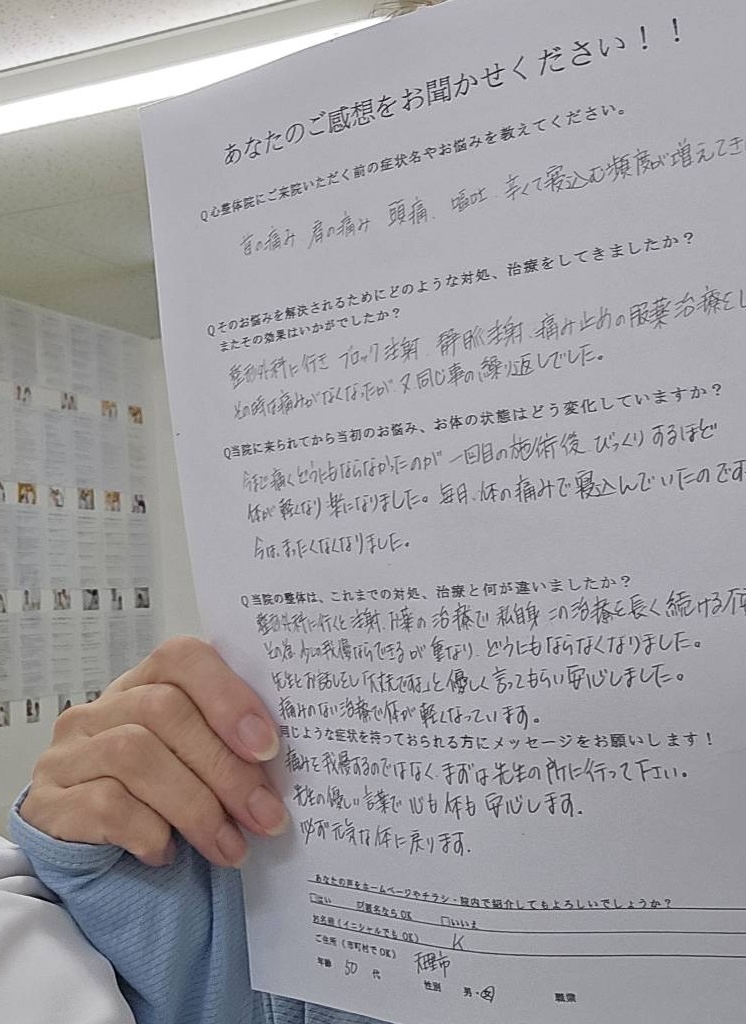 あなたのご感想をお聞かせください！！
Q 心整体院にご来院いただく前の症状名やお悩みを教えてください。
首の痛み 肩の痛み 頭痛、嘔吐、辛くて寝込む頻度が増えてき
Qそのお悩みを解決されるためにどのような対処、治療をしてきましたか？
またその効果はいかがでしたか？
整形外科に行き ブロック注射、静脈注射、痛み止めの服薬治療をし
その時は痛みがなくなったが、又同じ事の繰り返しでした。
Q当院に来られてから当初のお悩み、お体の状態はどう変化していますか？
今まで痛くどうにもならなかったのが 一回目の施術後 びっくりするほど
体が軽くなり楽になりました。毎日、体の痛みで寝込んでいたのです
今は、まったくなくなりました。
Q 当院の整体は、これまでの対処、治療と何が違いましたか？
整形外科に行くと注射、内薬の治療で 私自身 この治療を長く続ける不
その為、少しの我慢ならできるが 重なり、どうにもならなくなりました。
先生とお話しをし「大丈夫ですよ」と優しく言ってもらい安心しました。
痛みのない治療で体が軽くなっています。
同じような症状を持っておられる方にメッセージをお願いします！
痛みを我慢するのではなく、まずは先生の所に行って下さい。
先生の優しい言葉で 心も体も 安心します。
必ず元気な体に戻ります。
あなたの声をホームページやチラシ・院内で紹介してもよろしいでしょうか？
□はい ☑匿名ならOK □いいえ
お名前（イニシャルでもOK） K
ご住所（市町村でOK） 天理市
年齢 50 代 性別 男・女 職業